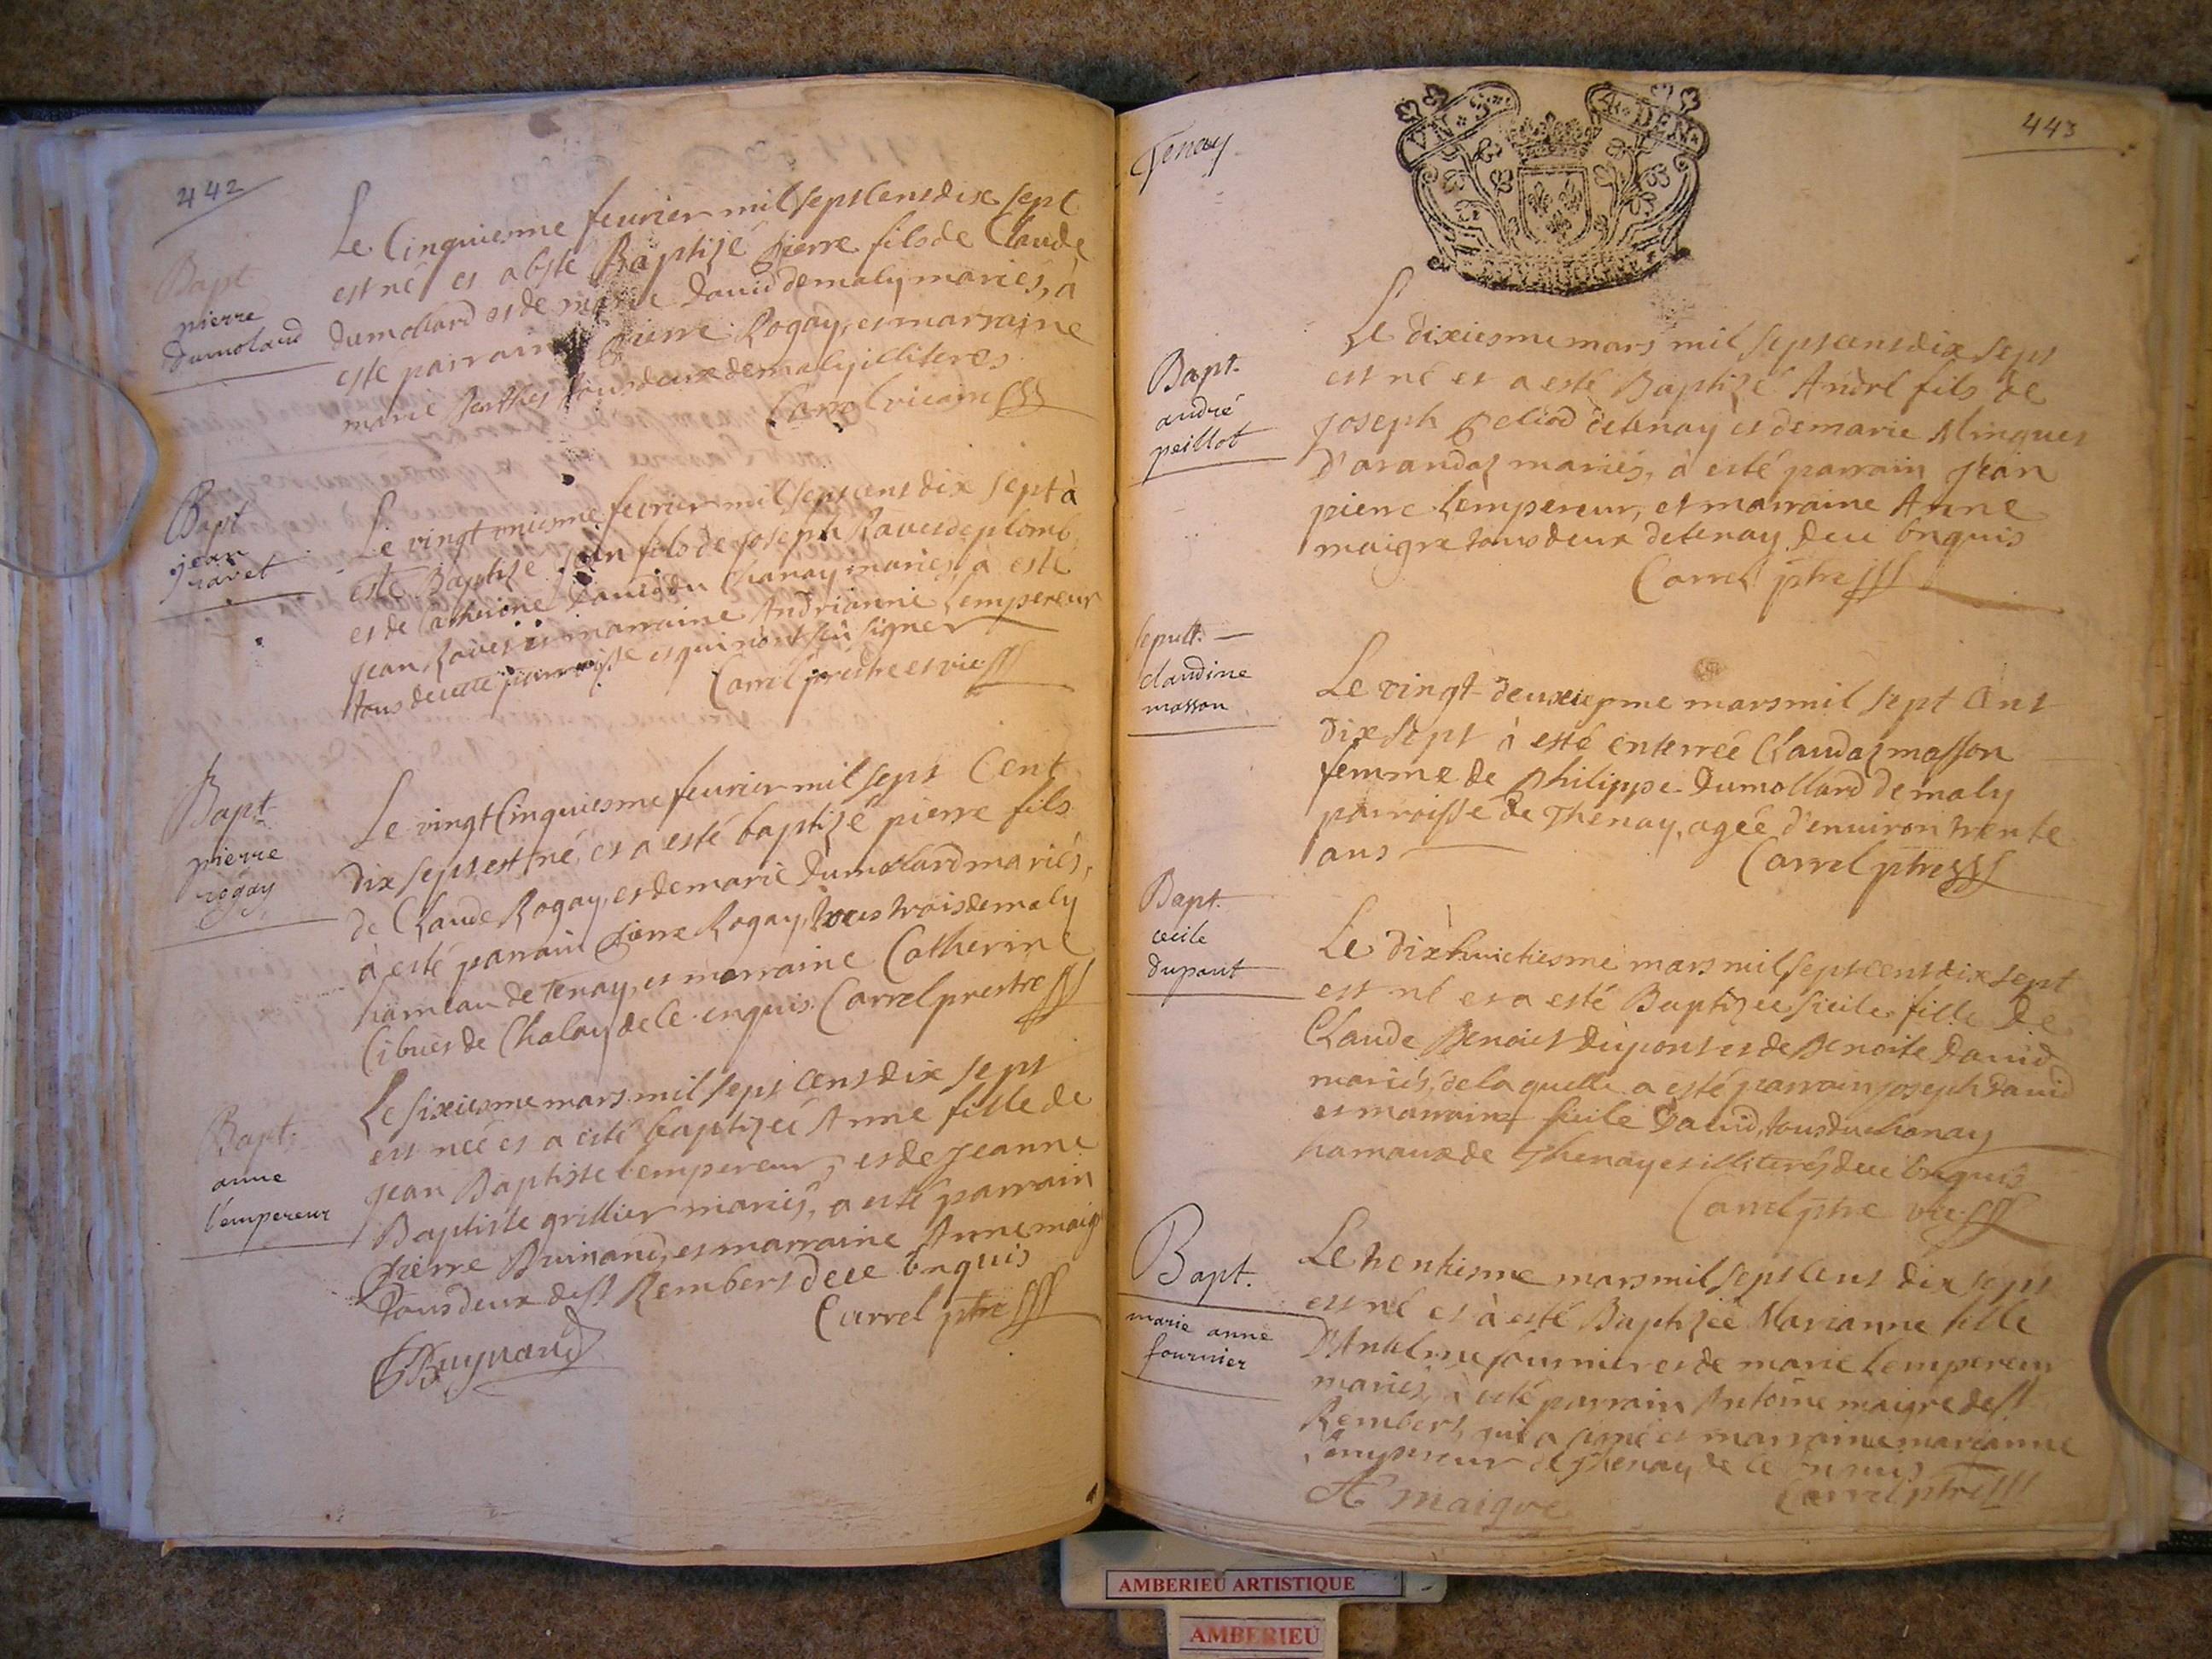 442
Bapt
pierre
Dumolard
Le Cinquiesme feurier mil sept Cens dix sept
est né et a esté Baptizé pierre fils de Claude
Dumollard et de marie Dauid de maly mariés, à
esté parrain pierre Rogay, et marraine
marie tous deux de maly illiteres
Carrel vicaire
Bapt
jean
ravet
Le vingt uniesme feurier mil sept cens dix sept à
esté Baptizé Jean fils de Joseph Rauet de plomb
et de Dauid du Chanay mariés, a esté
Jean Rauet et marraine Andrianne Lempereur
tous de cette parroisse et qui n'ont sçu signer
Carrel prestre et vic
Bapt
pierre
rogay
Le vingt Cinquiesme feurier mil sept Cent
dix sept est né, et a esté baptizé pierre fils
de Claude Rogay, et de marie Dumollard mariés,
à esté parrain pierre Rogay, tous trois de maly
hameau de Tenay, et marraine Catherine
de Chalay de ce enquis. Carrel prestre
Bapt.
anne
l'empereur
Le sixiesme mars mil sept cens dix sept
est née et a esté baptizée Anne fille de
Jean Baptiste l'empereur, et de Jeanne
Baptiste grillier mariés, a esté parrain
pierre Buinand, et marraine Anne maig
tous deux de st Rembert de ce enquis
Carrel ptre
Buynand
Tenay
VN S. 4. DEN.
443
Bapt.
andré
peillot
Le dixiesme mars mil sept cens dix sept
est né et a esté Baptizé André fils de
Joseph detenay et de marie Minguet
d'arandaz mariés, à esté parrain Jean
pierre Lempereur, et marraine Anne
maigre tous deux detenay De ce Enquis
Carrel ptre
sepult.
claudine
masson
Le vingt deuxiesme mars mil sept Cens
dix sept à esté enterrée Claudaz masson
femme de Philippe Dumollard de maly
parroisse de Thenay, agée d'enuiron trente
ans
Carrel ptre
Bapt.
cecile
dupont
Le dixhuictiesme mars mil sept cens dix sept
est né et a esté Baptizée sicile fille de
Claude Benoist Dupont et de Benoite Dauid
mariés, de laquelle a esté parrain joseph Dauid
et marraine sicile Dauid, tous du chanay
hamaux de Thenay et illiterés de ce Enquis
Carrel ptre vic
Bapt.
marie anne
fournier
Le trentiesme mars mil sept Cens dix sept
est né et à esté Baptizée Marianne fille
D'Antelme fournier et de marie Lempereur
mariés, à esté parrain Antoine maigre de st
Rembert, qui a signé et marraine marianne
Lempereur de Thenay de ce Enquis
Carrel ptre
A maigre
AMBERIEU ARTISTIQUE
AMBERIEU